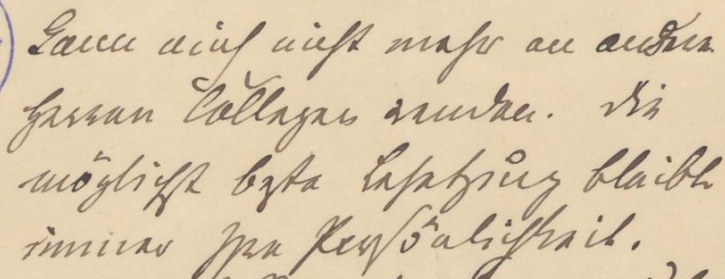 kann mich nicht mehr an andere
Herren Collegen wenden. Die
möglichst beste Besetzung bleibt
immer Ihre Persönlichkeit.